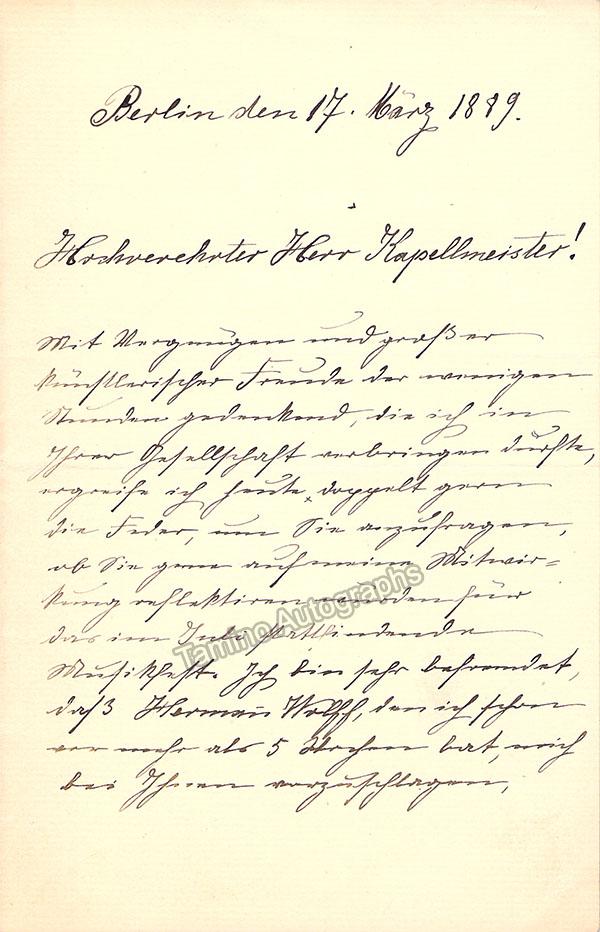 Berlin den 17. März 1889.
Hochverehrter Herr Kapellmeister!
Mit Vergnügen und großer
künstlerischer Freude der wenigen
Stunden gedenkend, die ich in
Ihrer Gesellschaft verbringen durfte,
ergreife ich heute doppelt gern
die Feder, um Sie anzufragen,
ob Sie gerne auf meine Mitwir-
kung reflektiren würden für
das im Juli stattfindende
Musikfest. Ich bin sehr befremdet,
daß Hermann Wolff, den ich schon
vor mehr als 5 Wochen bat, mich
bei Ihnen vorzuschlagen,
Tamino Autographs